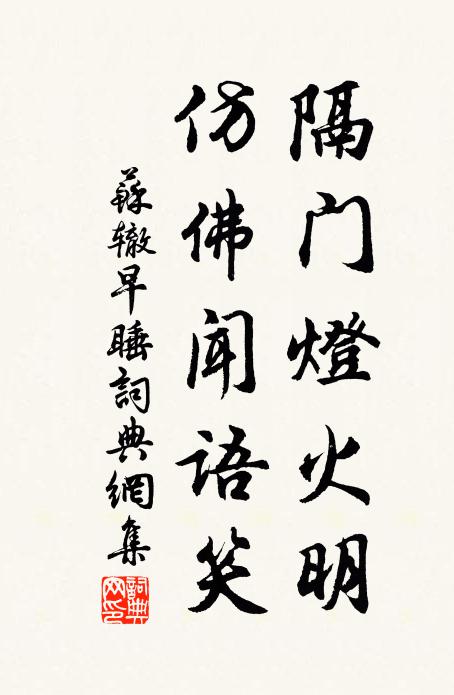 隔门燈火明
仿佛闻语笑
蘇辙早睡詞典網集
詞典網印